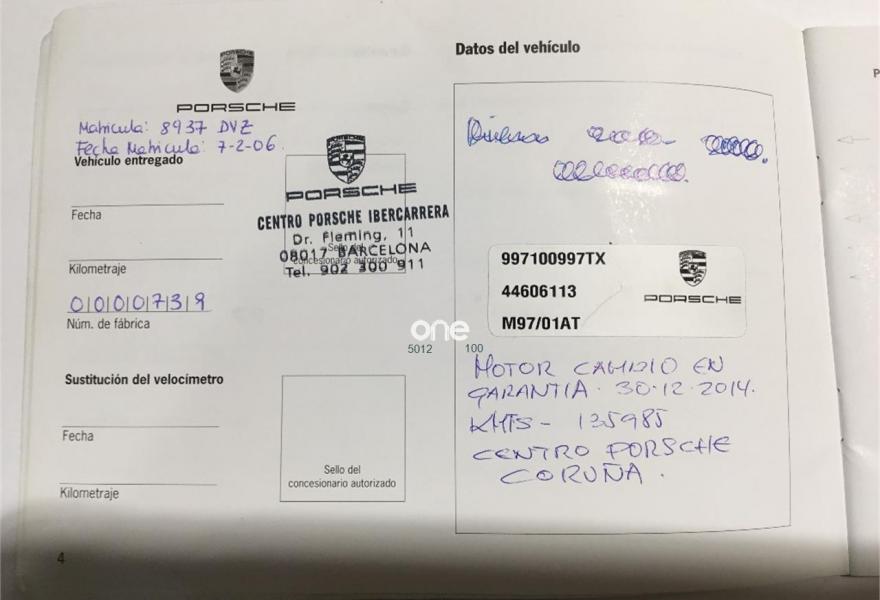 PORSCHE
PORSCHE
Matricula: 8937 DVZ
Fecha Matricula: 7-2-06.
Vehículo entregado
Fecha
Kilometraje
0|0|0|0|7|3|9
Núm. de fábrica
PORSCHE
PORSCHE
CENTRO PORSCHE IBERCARRERA
Dr. Fleming, 11
08017 BARCELONA
Tel. 902 300 911
Sello del
concesionario autorizado
Sustitución del velocímetro
Fecha
Kilometraje
Sello del
concesionario autorizado
4
one
5012 100
Datos del vehículo
997100997TX
44606113
M97/01AT
PORSCHE
PORSCHE
MOTOR CAMBIO EN
GARANTIA. 30.12.2014.
KMTS - 135985
CENTRO PORSCHE
CORUÑA.
P